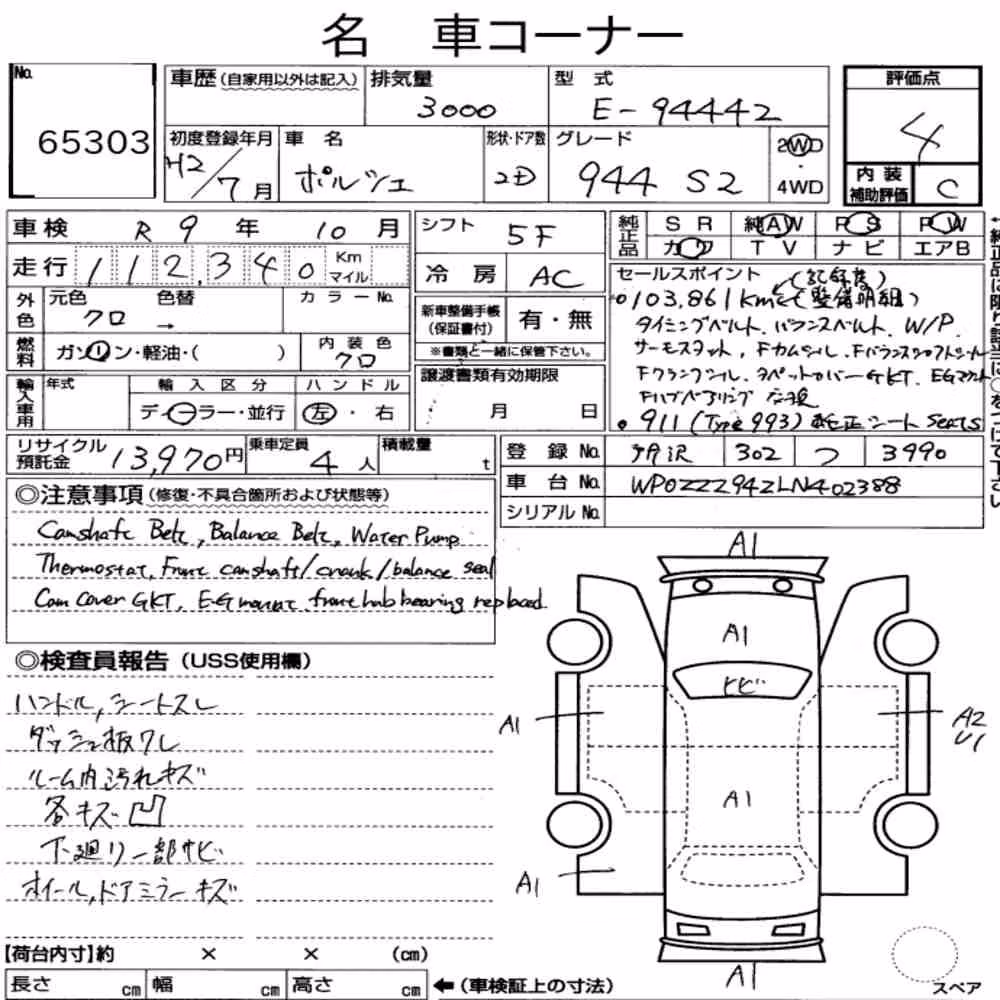 名 車コーナー
No.
65303
車歴 (自家用以外は記入)
排気量
3000
型式
E-94442
評価点
4
初度登録年月
H2/7月
車名
ポルシェ
形状・ドア数
2D
グレード
944 S2
2WD
・
4WD
内装
補助評価
C
車検 R 9 年 10 月
シフト
5F
純正品
SR 純AW PS PW
カワ TV ナビ エアB
走行 112,340 Km マイル
冷房
AC
外色
元色 色替 カラーNo.
クロ →
新車整備手帳
(保証書付)
有・無
※書類と一緒に保管下さい。
セールスポイント (記録簿)
●103,861kmにて(整備明細)
タイミングベルト、バランスベルト、W/P
サーモスタット、Fカムシール、Fバランスシャフトシール
Fクランクシール、タペットカバーGKT、EGマウント
Fハブベアリング 交換
● 911 (Type 993) 純正シート Seats
燃料
ガソリン・軽油・( )
内装色
クロ
輸入車用
年式 輸入区分 ハンドル
ディーラー・並行 左・右
譲渡書類有効期限
月 日
リサイクル
預託金
13,970円
乗車定員
4人
積載量
t
登録No.
302 つ 3990
車台No.
WP0ZZZ94ZLN402388
シリアルNo.
◎注意事項 (修復・不具合箇所および状態等)
Camshaft Belt, Balance Belt, Water Pump
Thermostat, Front camshaft/crank/balance seal
Cam cover GKT, E-G mount, front hub bearing replaced.
◎検査員報告 (USS使用欄)
ハンドル,シートスレ
ダッシュ板ワレ
ルーム内汚れキズ
各キズ凹
下廻り一部サビ
ホイール,ドアミラーキズ
A1
A1
トビ
A1
A2
U1
A1
A1
A1
【荷台内寸】約 × × (cm)
長さ cm 幅 cm 高さ cm
←(車検証上の寸法)
スペア